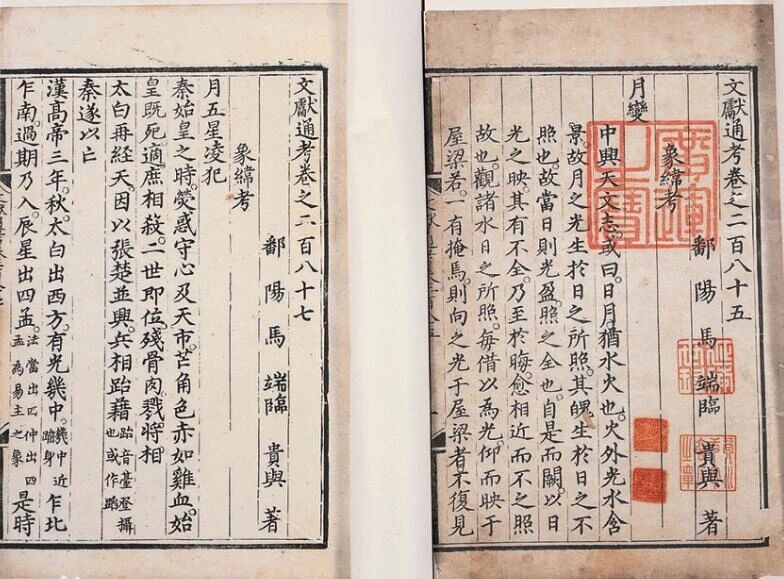 文獻通考卷之二百八十五
鄱陽馬端臨 貴與 著
象緯考
月變
中興天文志。或曰。日月猶水火也。火外光水含
景。故月之光生於日之所照。其魄生於日之不
照也。故當日則光盈。照之全也。自是而闕。以日
光之映。其有不全。乃至於晦。愈相近而不之照
故也。觀諸水日之所照。每借以為光。仰而映于
屋梁。若一有掩焉。則向之光于屋梁者不復見
廣運之寶
文獻通考卷之二百八十七
鄱陽馬端臨 貴與 著
象緯考
月五星凌犯
秦始皇之時。熒惑守心及天市。芒角色赤如雞血。始
皇既死。適庶相殺。二世即位。殘骨肉。戮將相
太白再經天。因以張楚並興。兵相跆藉 跆音臺登攝也或作蹈
秦遂以亡
漢高帝三年。秋。太白出西方。有光幾中。幾中近踰身 乍北
乍南。過期乃入。辰星出四孟。法當出四仲出四孟為易主之象 是時